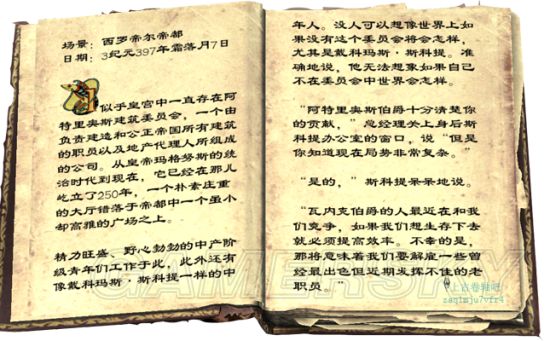 场景：西罗帝尔帝都
日期：3纪元397年霜落月7日
似乎皇宫中一直存在阿
特里奥斯建筑委员会，一个由
负责建造和公正帝国所有建筑
的职员以及地产代理人所组成
的公司。从皇帝玛格努斯的统
治时代到现在，它已经在那儿
屹立了250年，一个朴素庄重
的大厅错落于帝都中一个虽小
却高雅的广场之上。
精力旺盛、野心勃勃的中产阶
级青年们工作于此，此外还有
像戴科玛斯·斯科提一样的中
年人。没人可以想像世界上如
果没有这个委员会将会怎样，
尤其是戴科玛斯·斯科提。准
确地说，他无法想象如果自己
不在委员会中世界会怎样。
“阿特里奥斯伯爵十分清楚你
的贡献，”总经理关上身后斯
科提办公室的窗口，说“但是
你知道现在局势非常复杂。”
“是的，”斯科提呆呆地说。
“瓦内克伯爵的人最近在和我
们竞争，如果我们想生存下去
就必须提高效率。不幸的是，
那将意味着我们要解雇一些曾
经最出色但近期发挥不佳的老
职员。”
上古卷轴吧
zaq1mju7vfr4
GAMERSKY